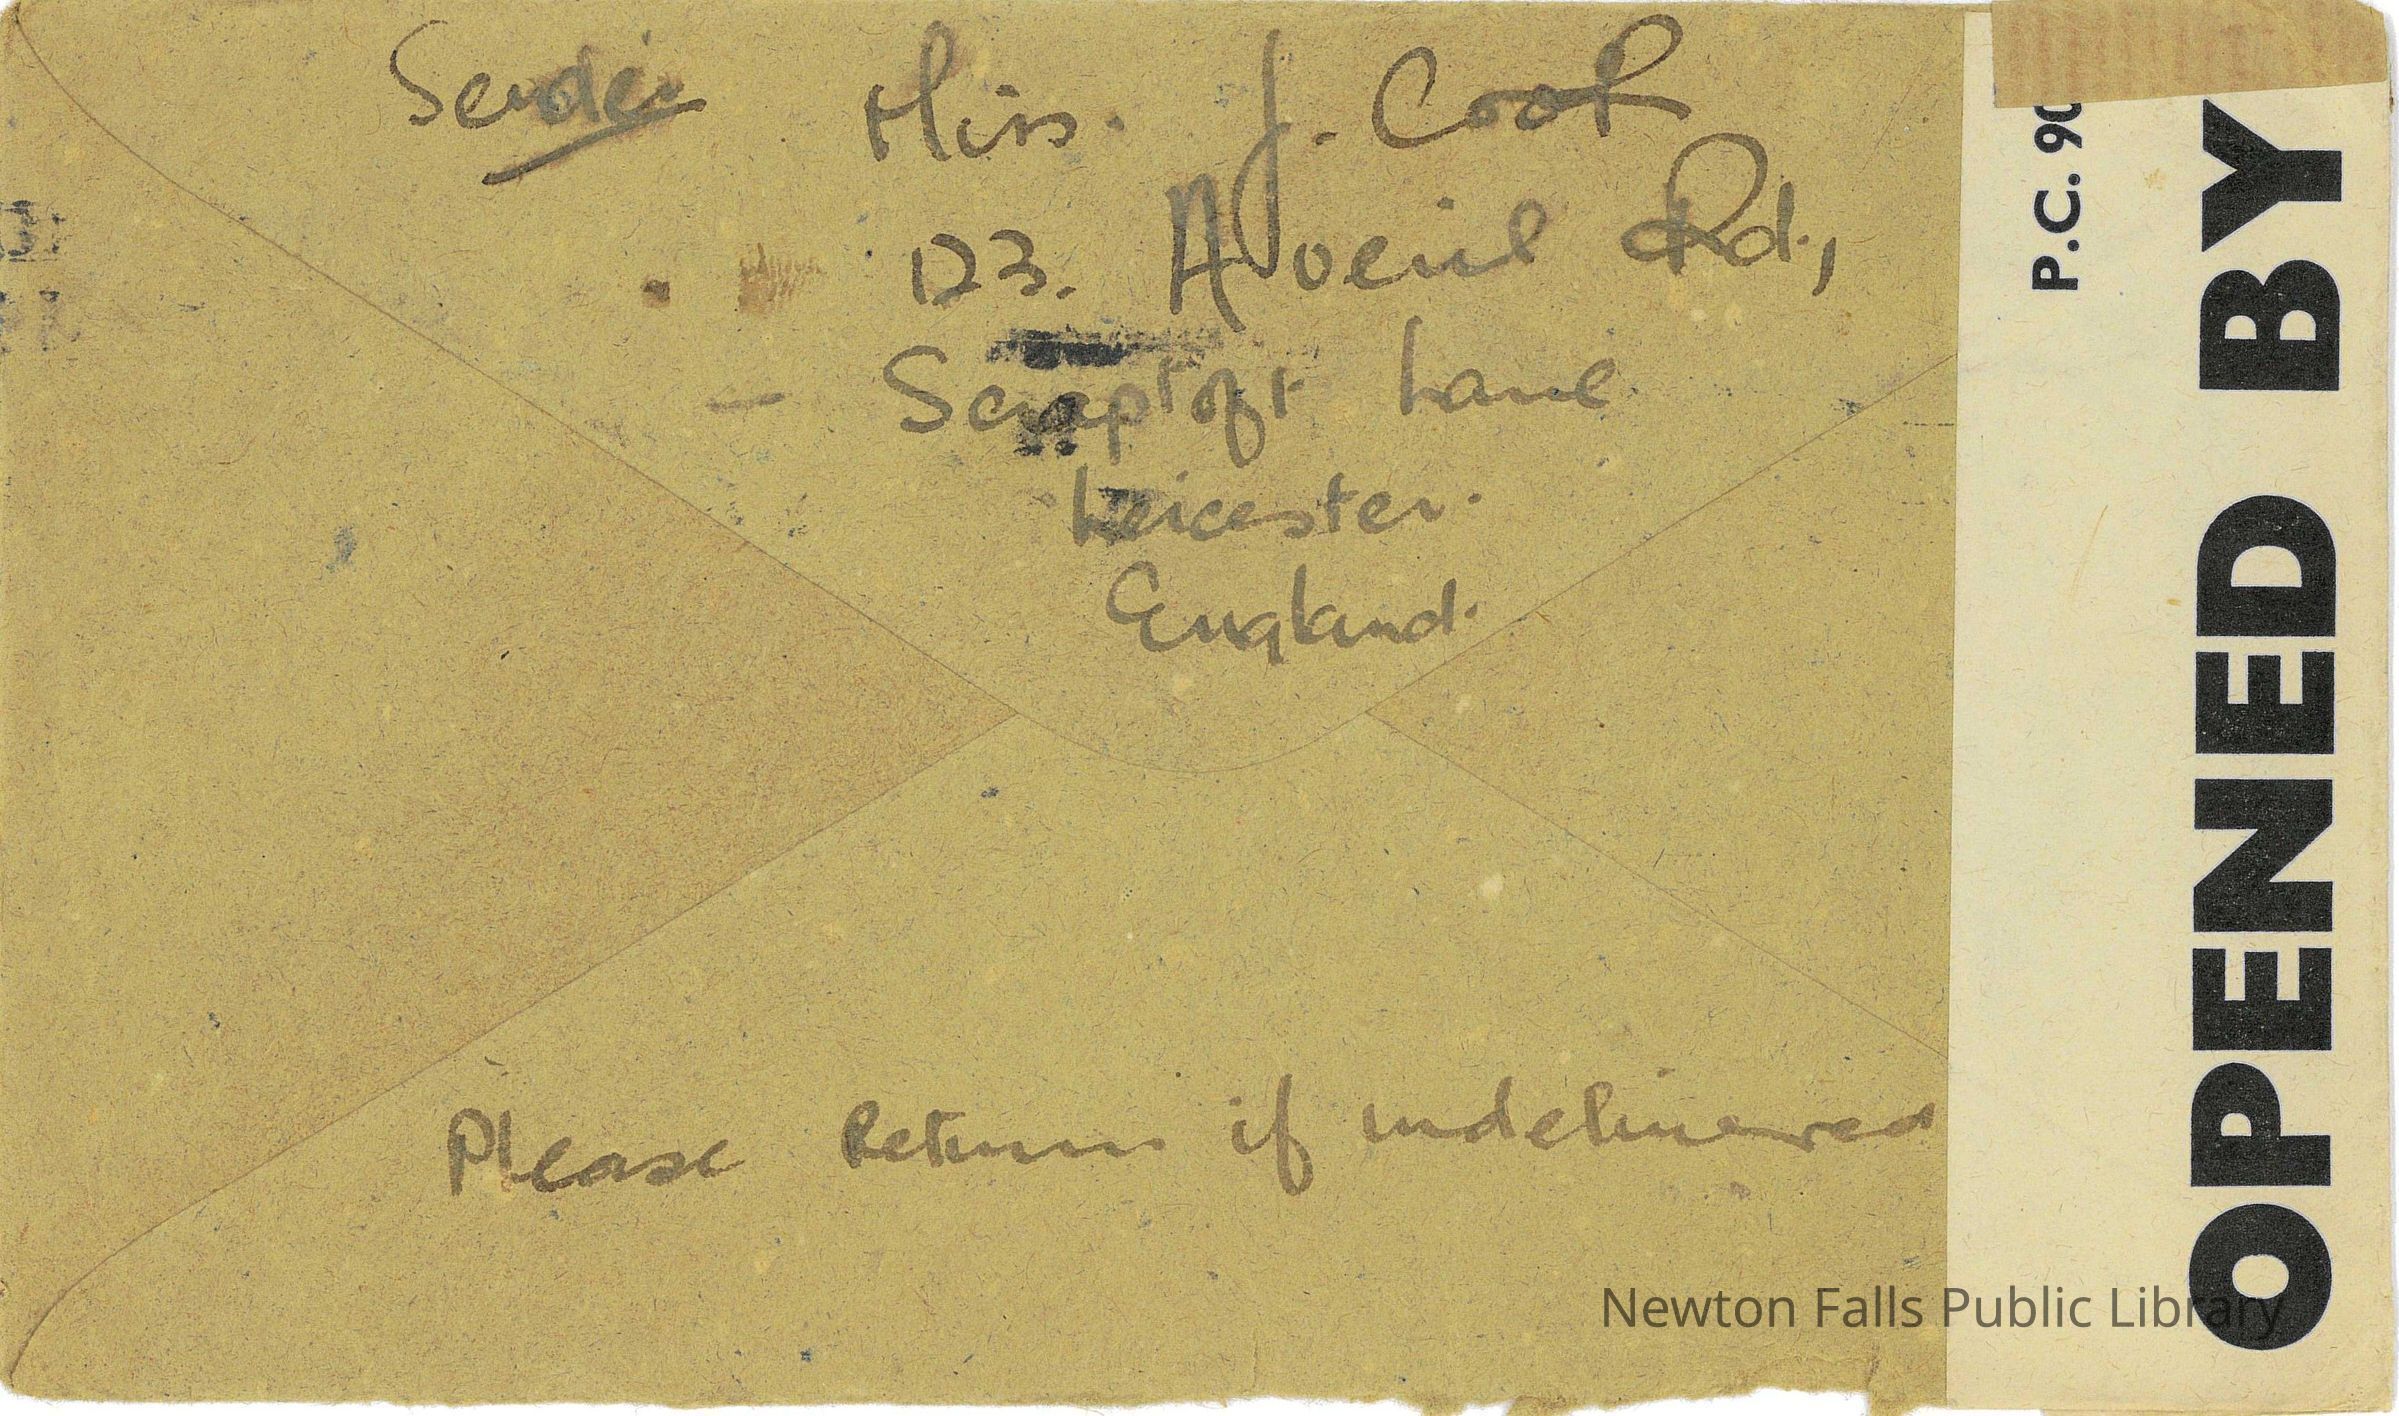 Sender Miss. J. Cook
123. Averil Rd.,
Scraptoft Lane
Leicester.
England.
Please Return if undelivered
P.C. 90
OPENED BY
Newton Falls Public Library